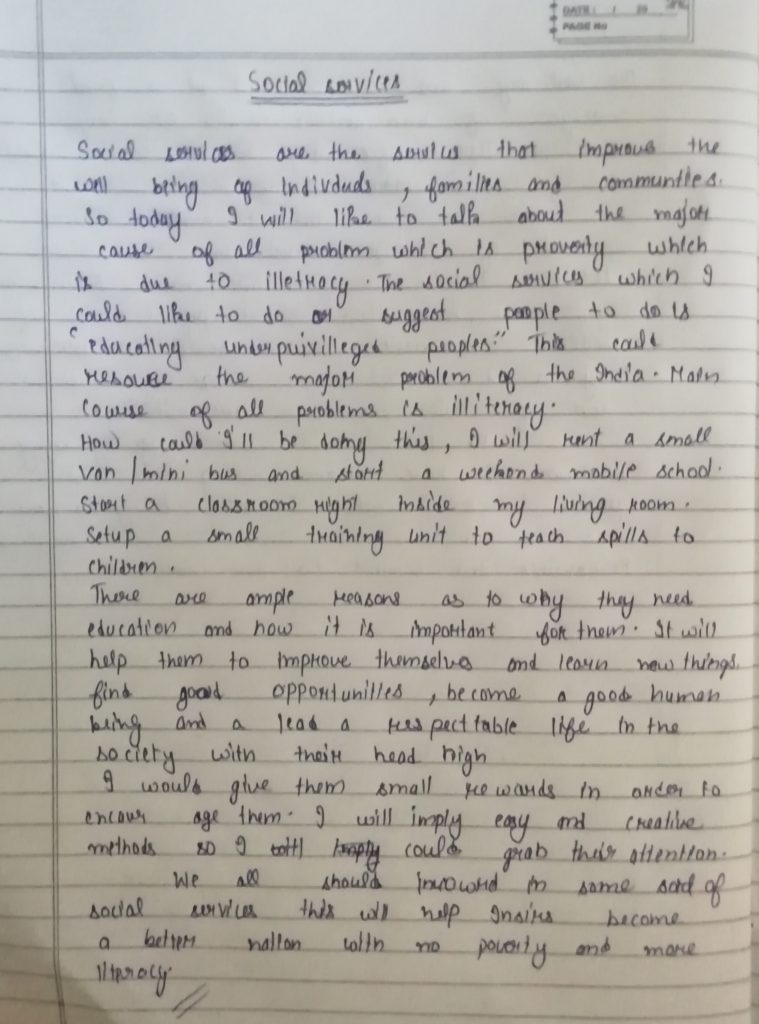 DATE: / 20
PAGE NO
Social services
Social services are the services that improve the
well being of Indivduds , families and communties.
So today I will like to talk about the major
cause of all problem which is proverty which
is due to illetracy. The social services which I
could like to do or suggest people to do is
"edacating underpuivilleged peoples." This could
resouee the major problem of the India. Main
Couuse of all problems is illiteracy.
How could I'll be doing this, I will rent a small
van / mini bus and start a weekend mobile school.
Start a classroom right inside my living room.
Setup a small training unit to teach spills to
children.
There are ample reasons as to why they need
education and how it is important for them. It will
help them to improve themselves and learn new things,
find good opportunities, become a good human
being and a lead a respecttable life in the
society with their head high
I would give them small rewards in order to
encour age them. I will imply easy and creative
methods so I could grab their attention.
We all should in some sort of
social services this will help become
a better nation with no poverty and more
literacy